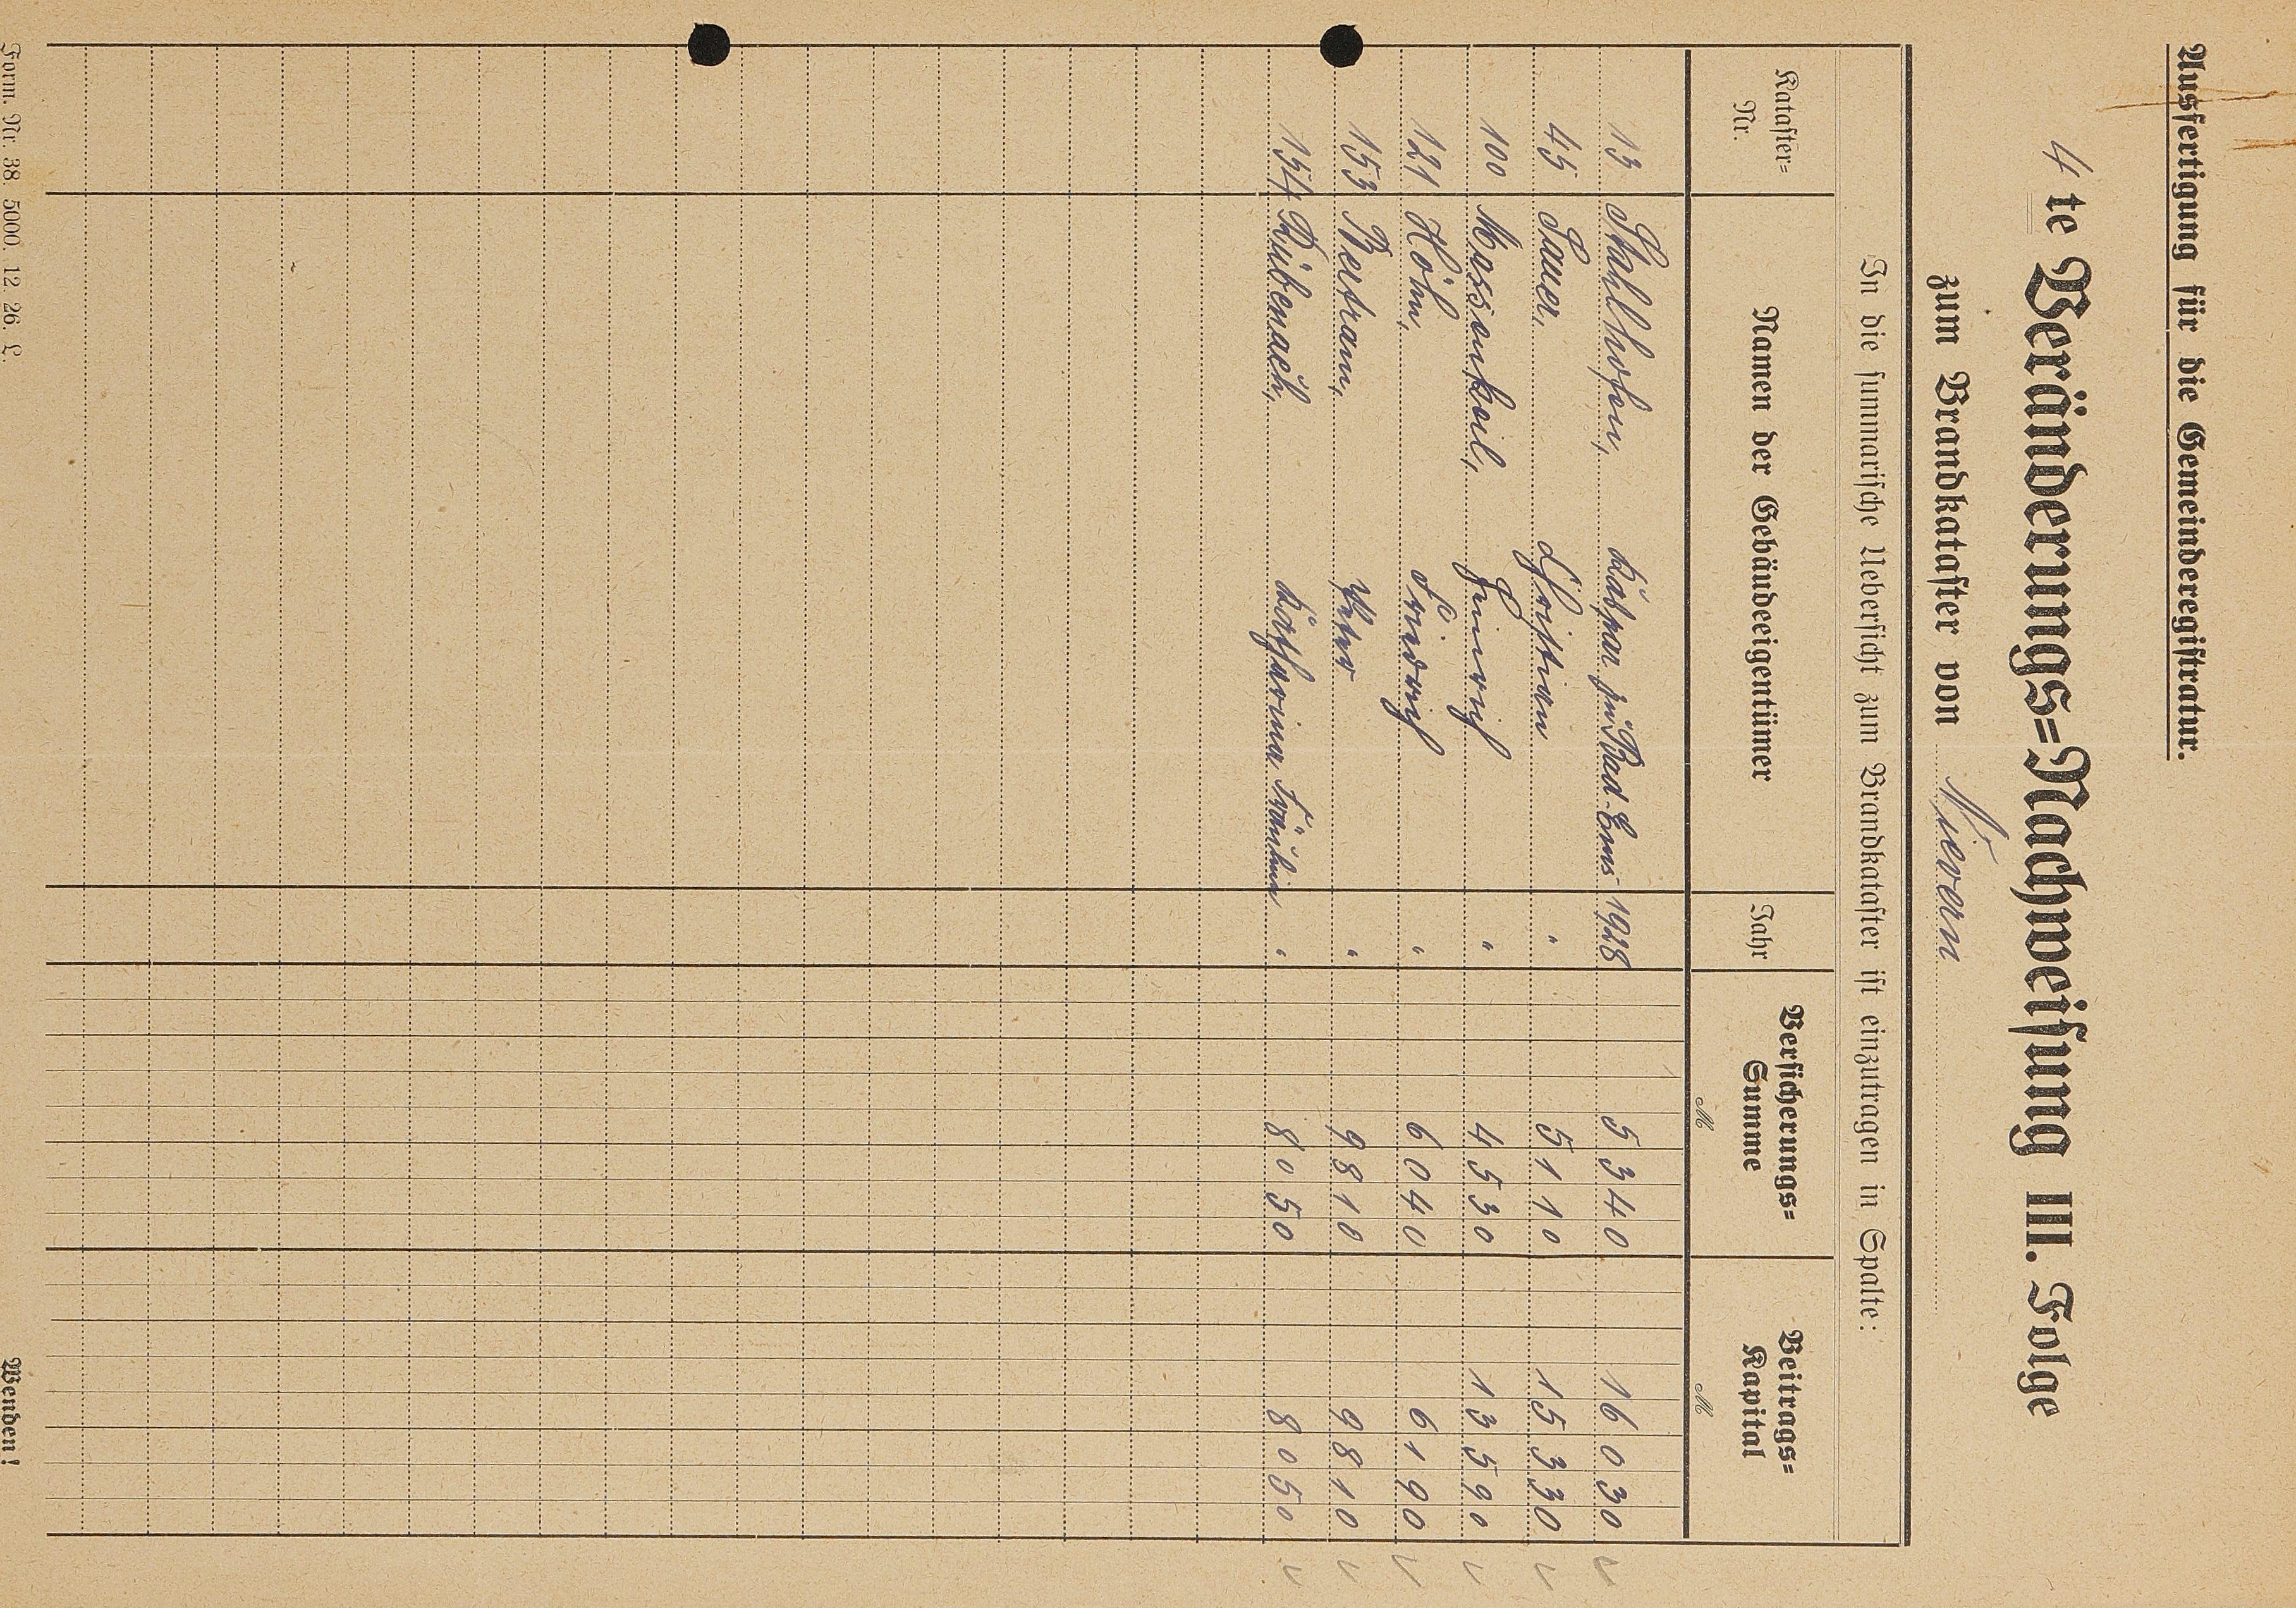 Ausfertigung für die Gemeinderegistratur.
4 te Veränderungs=Nachweisung III. Folge
zum Brandkataster von Nievern
In die summarische Uebersicht zum Brandkataster ist einzutragen in Spalte:
Kataster= Nr. Namen der Gebäudeeigentümer Jahr Versicherungs= Summe Beitrags= Kapital
M M
13 Stahlhofen, Kaspar zu Bad-Ems 1928 5340 16030
45 Sauer, Christian " 5110 15330
100 Massenkeil, Heinrich " 4530 13590
121 Höhn, Friedrich " 6040 6190
153 Bertram, Peter " 9810 9810
154 Rübenach, Katharina Fräulein " 8050 8050
Form. Nr. 38. 5000. 12. 26. L.
Wenden!